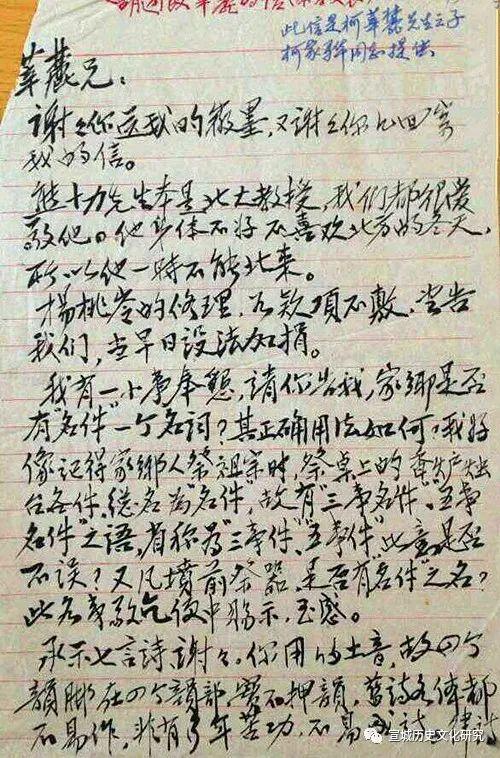 此信是柯莘麓先生之子
柯家骅同志提供
莘麓兄:
谢々你送我的徽墨,又谢々你几回寫
我的信。
熊十力先生本是北大教授,我们都很爱
敬他。他身体不好不喜欢北方的冬天,
所以他一時不能北来。
楊桃岺的修理,如款項不敷,当告
我们,当早日设法加捐。
我有一小事奉懇,請你告我,家鄉是否
有"名件"一个名词?其正确用法如何?我好
像记得家鄉人祭祖宗时,祭桌上的香炉燭
台各件,總名为"名件",故有"三事名件"、"五事
名件"之语,省称為"三事件"、"五事件",此意是否
不误?又凡墳前祭器,是否有"名件"之名?
此名事敬乞便中賜示,至感。
承示七言詩,謝々。你用的土音,故四个
韻脚在四个韻部,實不押韻,舊詩各体都
不易作,非有多年苦功,不易成詩。律詩
宣城历史文化研究